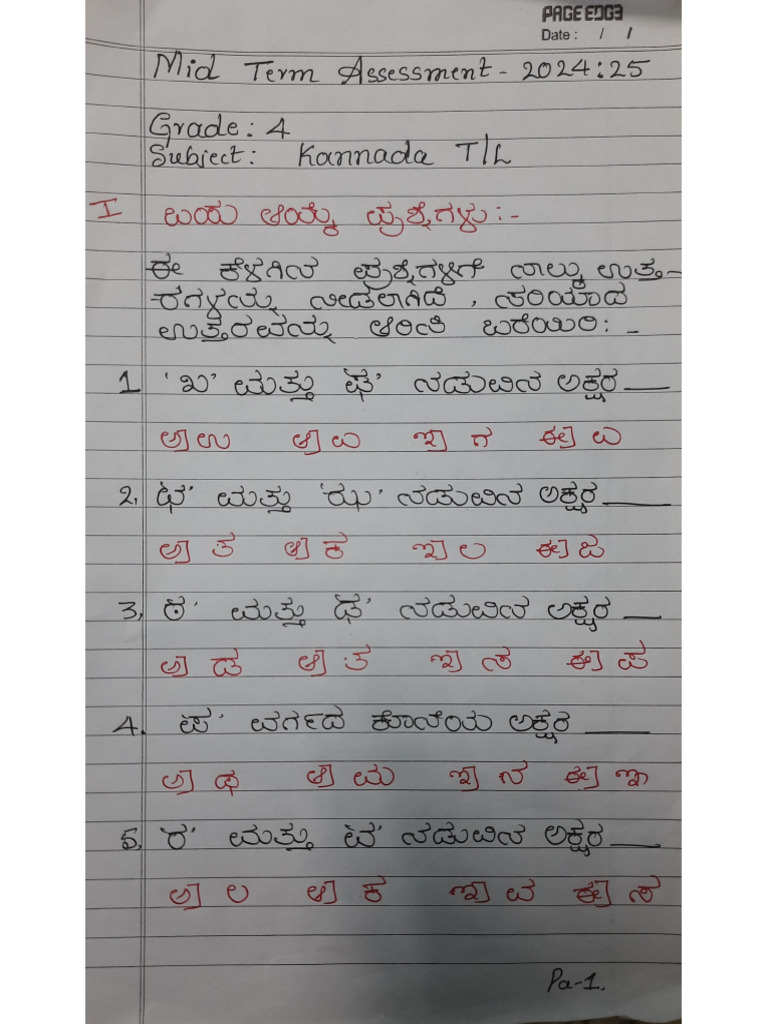 PAGE EDGE
Date : / /
Mid Term Assessment - 2024:25
Grade: 4
Subject: Kannada T/L
I ಬಹು ಆಯ್ಕೆ ಪ್ರಶ್ನೆಗಳು :-
ಈ ಕೆಳಗಿನ ಪ್ರಶ್ನೆಗಳಿಗೆ ನಾಲ್ಕು ಉತ್ತ-
ರಗಳನ್ನು ನೀಡಲಾಗಿದೆ , ಸರಿಯಾದ
ಉತ್ತರವನ್ನು ಆರಿಸಿ ಬರೆಯಿರಿ: -
1 'ಖ' ಮತ್ತು ಘ' ನಡುವಿನ ಅಕ್ಷರ ___
ಅ] ಉ ಆ] ಎ ಇ] ಗ ಈ] ಏ
2, ಛ' ಮತ್ತು 'ಝ' ನಡುವಿನ ಅಕ್ಷರ ___
ಅ] ತ ಆ] ಕ ಇ] ಲ ಈ] ಜ
3, ಠ' ಮತ್ತು ಢ' ನಡುವಿನ ಅಕ್ಷರ ___
ಅ] ಡ ಆ] ತ ಇ] ಸ ಈ] ಪ
4. ಪ' ವರ್ಗದ ಕೊನೆಯ ಅಕ್ಷರ ___
ಅ] ಥ ಆ] ಮ ಇ] ನ ಈ] ಞ
5, 'ರ' ಮತ್ತು 'ವ' ನಡುವಿನ ಅಕ್ಷರ ___
ಅ] ಲ ಆ] ಕ ಇ] ವ ಈ] ಸ
Pa-1.